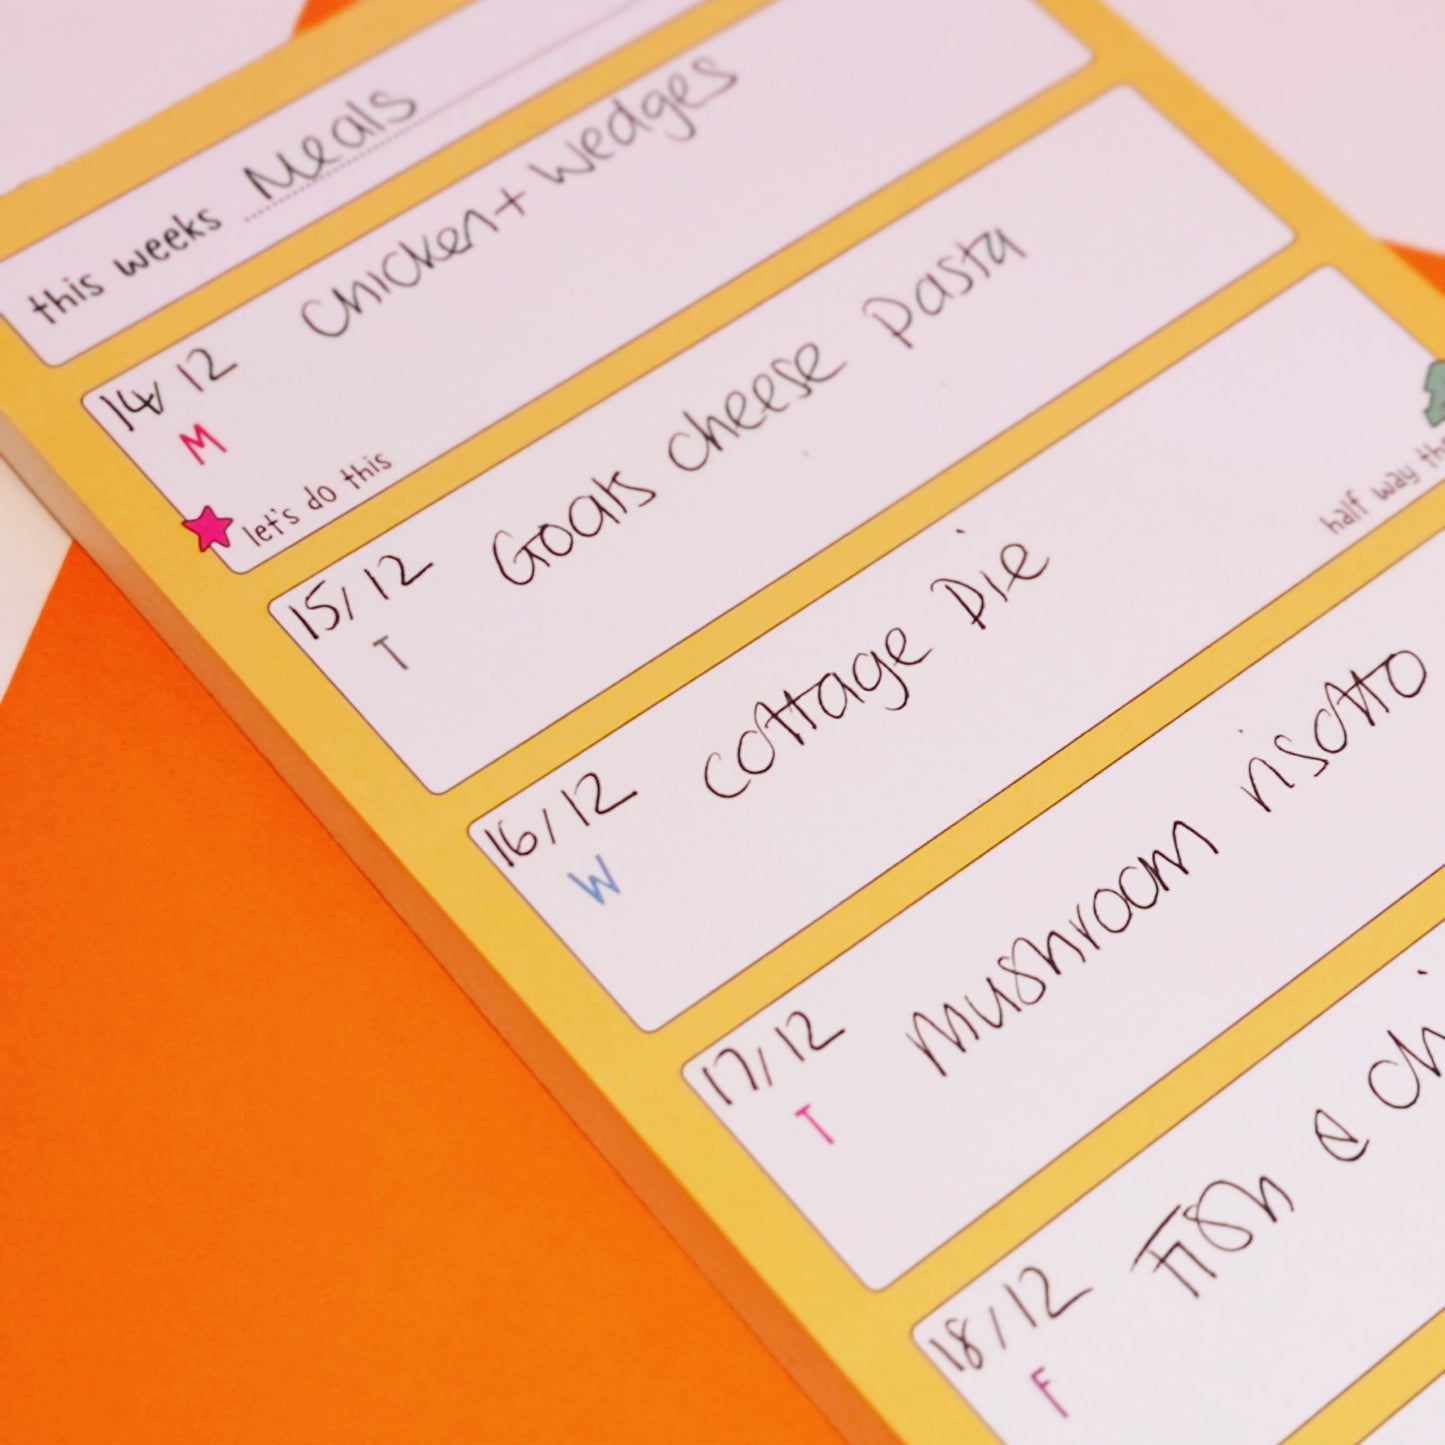 this weeks Meals
14/12 Chicken + Wedges
M
let's do this
15/12 Goats cheese Pasta
T
16/12 cottage Pie
W
half way
17/12 mushroom risotto
T
18/12 Fish &
F